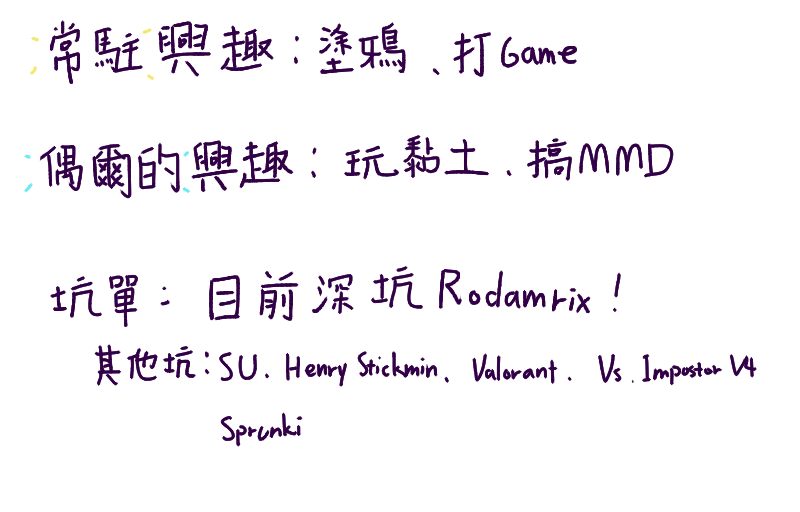 常駐興趣：塗鴉、打Game
偶爾的興趣：玩黏土、搞MMD
坑單：目前深坑Rodamrix！
其他坑：SU、Henry Stickmin、Valorant、Vs. Impostor V4
Sprunki